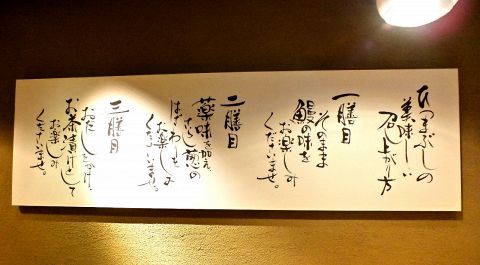 ひつまぶしの
美味しい
召し上がり方
一膳目
そのまま
鰻の味を
お楽しみ
くださいませ。
二膳目
薬味を加え、
さらし葱の
はごたえを
お楽しみ
くださいませ。
三膳目
おだしをかけ
お茶漬けとして
お楽しみ
くださいませ。